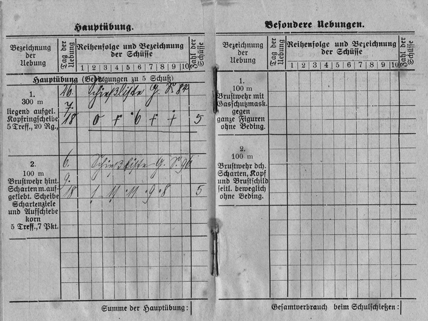 Hauptübung.
Bezeichnung der Uebung
Tag der Uebung
Reihenfolge und Bezeichnung der Schüsse
1 2 3 4 5 6 7 8 9 10
Zahl der Schüsse
Hauptübung (Bedingungen zu 5 Schuß)
1.
300 m
liegend aufgel.
Kopfringscheibe
5 Treff., 20 Rg.
16.
7.
18
Schießliste G. N. 84
5
2.
100 m
Brustwehr hint.
Scharten m. auf-
geklebt. Scheibe
Schartenziele
und Aufschiebe
korn
5 Treff., 7 Pkt.
6.
9.
18
Schießliste G. N. 96
5
Summe der Hauptübung:
Besondere Uebungen.
Bezeichnung der Uebung
Tag der Uebung
Reihenfolge und Bezeichnung der Schüsse
1 2 3 4 5 6 7 8 9 10
Zahl der Schüsse
1.
100 m
Brustwehr mit
Gasschutzmask.
gegen
ganze Figuren
ohne Beding.
2.
100 m
Brustwehr dch.
Scharten, Kopf
und Brustschild
seitl. beweglich
ohne Beding.
Gesamtverbrauch beim Schulschießen: